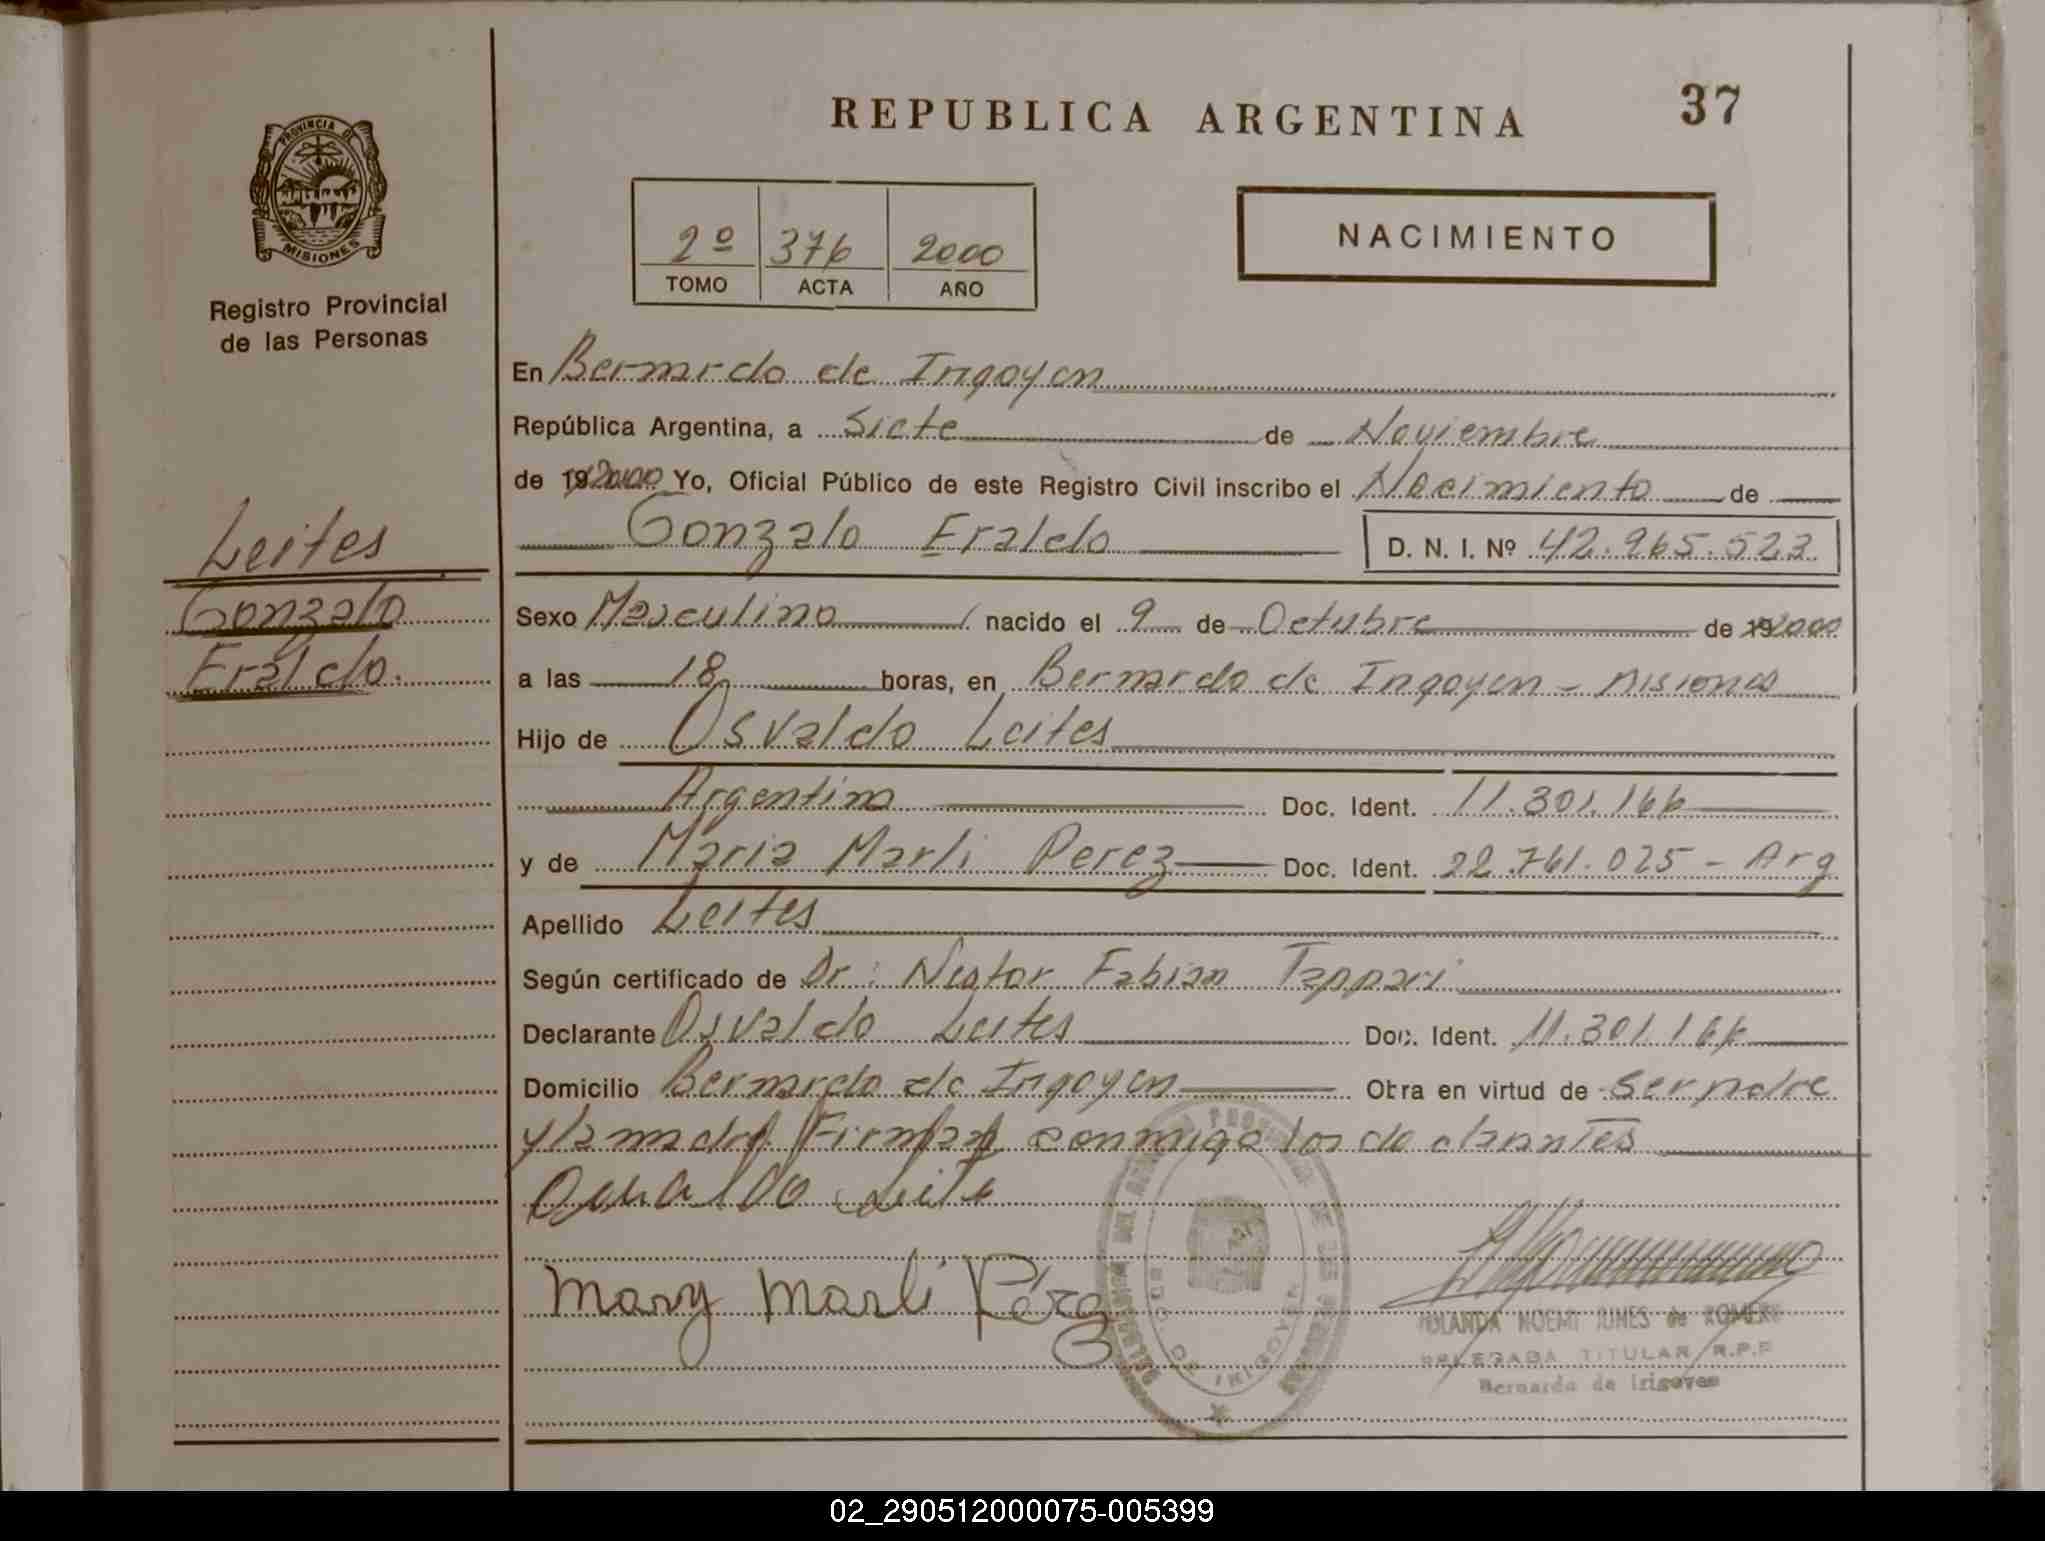 PROVINCIA DE
MISIONES
Registro Provincial
de las Personas
Leites
Gonzalo
Eraldo.
REPUBLICA ARGENTINA 37
2º 376 2000
TOMO ACTA AÑO
NACIMIENTO
En Bernardo de Irigoyen
República Argentina, a Siete de Noviembre
de 19 2000 Yo, Oficial Público de este Registro Civil inscribo el Nacimiento de
Gonzalo Eraldo D. N. I. Nº 42.965.523
Sexo Masculino nacido el 9 de Octubre de 19 2000
a las 18 horas, en Bernardo de Irigoyen - Misiones
Hijo de Osvaldo Leites
Argentina Doc. Ident. 11.301.166
y de Maria Marli Perez Doc. Ident. 22.761.025 - Arg
Apellido Leites
Según certificado de Dr: Nestor Fabian Tappari
Declarante Osvaldo Leites Doc. Ident. 11.301.166
Domicilio Bernardo de Irigoyen Obra en virtud de ser padre
y la madre Firman conmigo los declarantes
Osvaldo Leite
Mary Marli Pérez
YOLANDA NOEMI de ROMERO
DELEGADA TITULAR R.P.P
Bernardo de Irigoyen
02_290512000075-005399